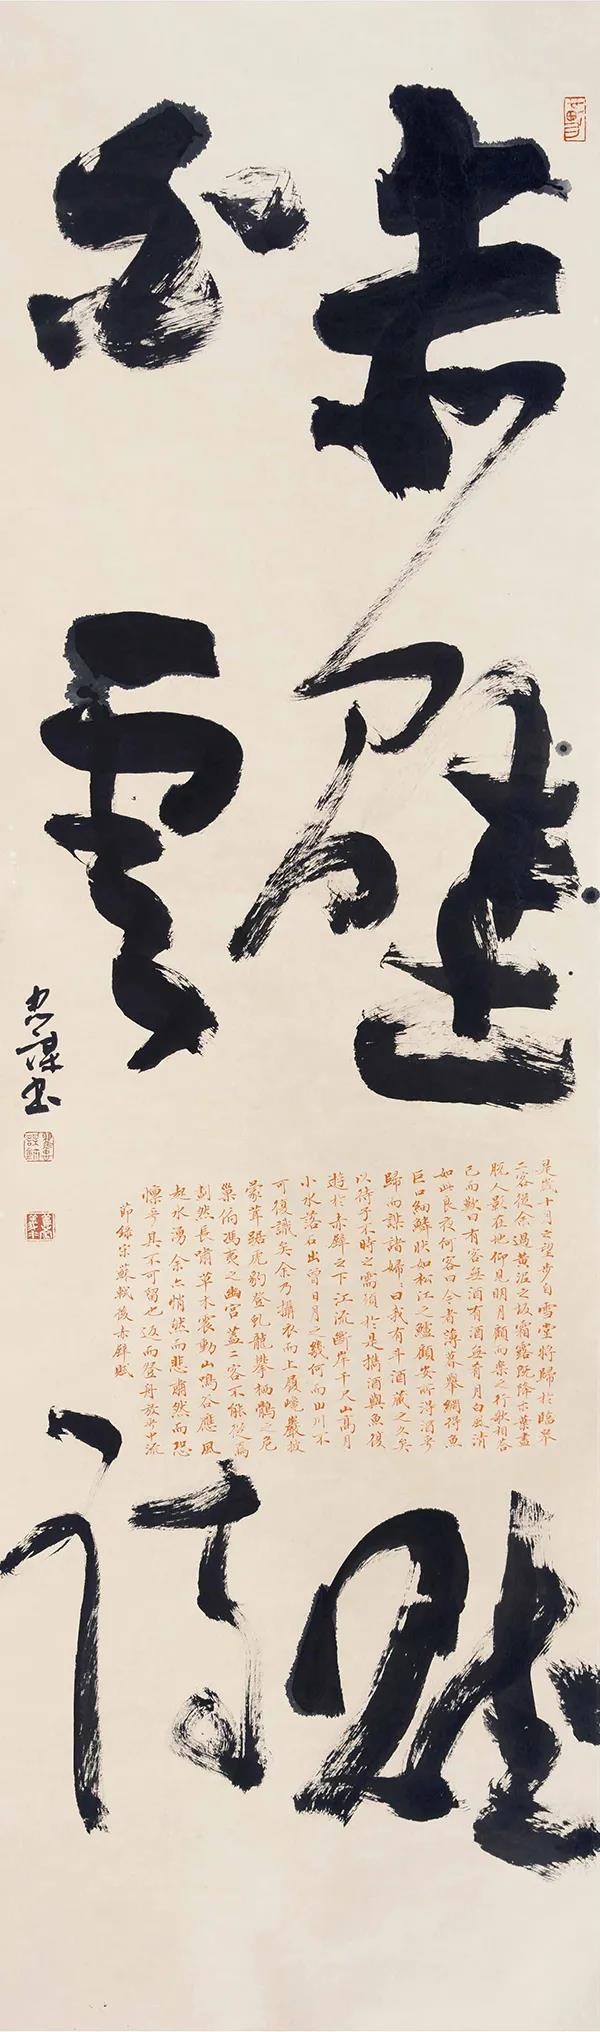 赤壁賦
白雲詩
是歲十月之望步自雪堂將歸於臨皋
二客從余過黃泥之坂霜露既降木葉盡
脫人影在地仰見明月顧而樂之行歌相答
已而歎曰有客無酒有酒無肴月白風清
如此良夜何客曰今者薄暮舉網得魚
巨口細鱗狀如松江之鱸顧安所得酒乎
歸而謀諸婦婦曰我有斗酒藏之久矣
以待子不時之需須於是攜酒與魚復
遊於赤壁之下江流斷岸千尺山高月
小水落石出曾日月之幾何而山川不
可復識矣余乃攝衣而上履巉巖披
蒙茸踞虎豹登虬龍攀栖鶻之危
巢俯馮夷之幽宮蓋二客不能從焉
劃然長嘯草木震動山鳴谷應風
起水湧余亦悄然而悲肅然而恐
凜乎其不可留也返而登舟放乎中流
節錄宋蘇軾後赤壁賦
忠謀書